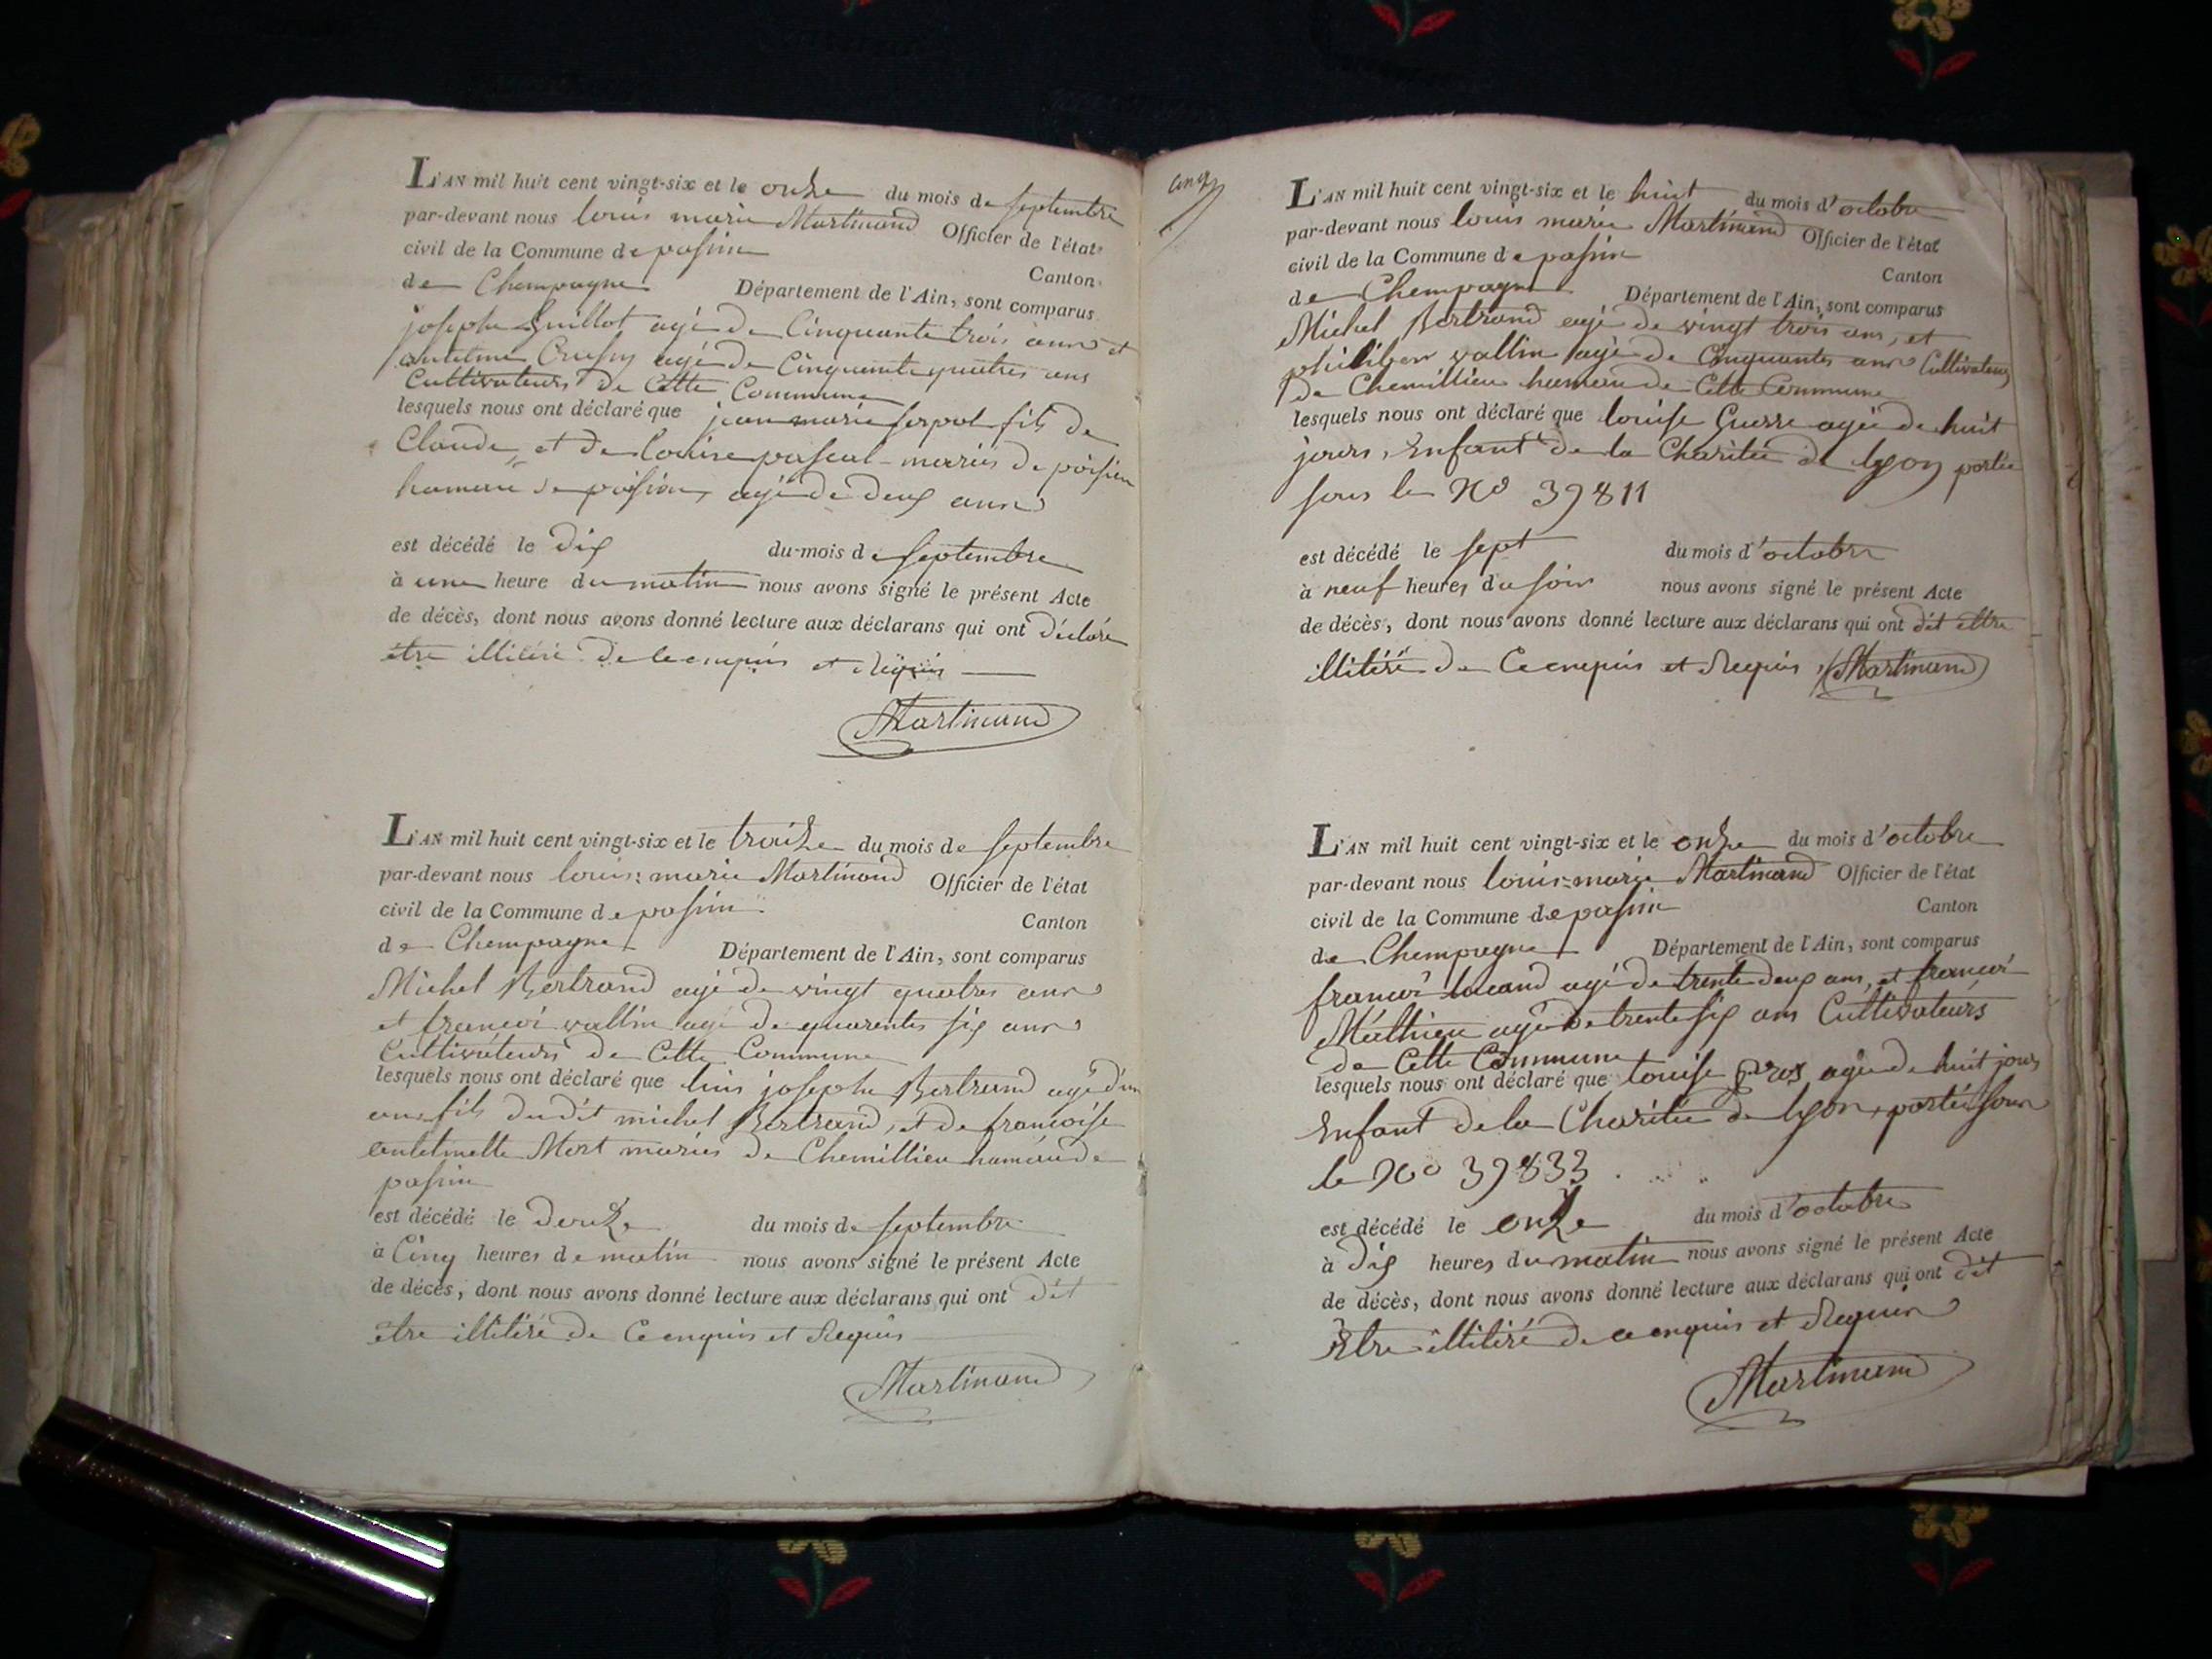 L'AN mil huit cent vingt-six et le onze du mois de septembre
par-devant nous louis marie Martinand Officier de l'état
civil de la Commune de passin
Canton
de Champagne Département de l'Ain, sont comparus
joseph Guillot agé de Cinquante trois ans et
antelme agé de Cinquante quatres ans
Cultivateurs de Cette Commune
lesquels nous ont déclaré que jean marie serpol fils de
Claude, et de louise pascal mariés de
hameau de agé de deux ans
est décédé le dix du mois de septembre
à une heure du matin nous avons signé le présent Acte
de décès, dont nous avons donné lecture aux déclarans qui ont déclaré
être illitéré de ce enquis et Requis
Martinand
L'AN mil huit cent vingt-six et le treize du mois de septembre
par-devant nous louis marie Martinand Officier de l'état
civil de la Commune de passin
Canton
de Champagne Département de l'Ain, sont comparus
Michel Bertrand agé de vingt quatres ans
et francoi vallin agé de quarentes six ans
Cultivateurs de Cette Commune
lesquels nous ont déclaré que luis joseph Bertrand agé d'un
ans fils dudit michel Bertrand, et de francoise
antelmette Mort mariés de Chemillieu hamau de
passin
est décédé le douze du mois de septembre
à Cinq heures de matin nous avons signé le présent Acte
de décès, dont nous avons donné lecture aux déclarans qui ont dit
etre illitéré de Ce enquis et Requis
Martinand
cinq
L'AN mil huit cent vingt-six et le huit du mois d'octobre
par-devant nous louis marie Martinand Officier de l'état
civil de la Commune de passin
Canton
de Champagne Département de l'Ain, sont comparus
Michel Bertrand agé de vingt trois ans, et
philiber vallin agé de Cinquantes ans Cultivateurs
de Chemillieu hameau de Cette Commune
lesquels nous ont déclaré que louise Guerre agée de huit
jours, Enfant de la Charitée de lyon portée
sous le No 39811
est décédé le sept du mois d'octobre
à neuf heures du soir nous avons signé le présent Acte
de décès, dont nous avons donné lecture aux déclarans qui ont dit ettre
illitéré de Ce enquis et Requis, Martinand
L'AN mil huit cent vingt-six et le onze du mois d'octobre
par-devant nous louis-marie Martinand Officier de l'état
civil de la Commune de passin
Canton
de Champagne Département de l'Ain, sont comparus
francoi agé de trente deux ans, et francoi
Mathieu agé de trente six ans Cultivateurs
de Cette Commune
lesquels nous ont déclaré que louise agée de huit jours
Enfant de la Charitée de lyon, portée sous
le No 39833
est décédé le onze du mois d'octobre
à dix heures du matin nous avons signé le présent Acte
de décès, dont nous avons donné lecture aux déclarans qui ont dit
Etre illitéré de ce enquis et Requis
Martinand